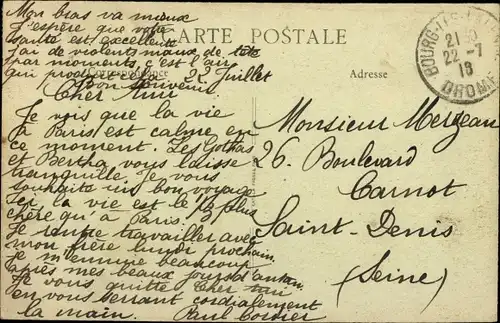 Mon bras va mieux
J'espère que votre
santé est excellente
J'ai de violents maux de tête
par moments, c'est l'air
qui
Bon souvenir
CARTE POSTALE
Correspondance
Adresse
BOURG-LES-VALENCE
21
22-7
18
DROME
22 Juillet
Cher Ami
Je vois que la vie
à Paris est calme en
ce moment. Les Gothas
et Bertha vous laisse
tranquille. Je vous
souhaite un bon voyage
la vie est le 1/2 plus
chère qu'à Paris.
Je rentre travailler avec
mon frère lundi prochain.
Je m'ennuie beaucoup
après mes beaux jours d'antan.
Je vous quitte Cher
en vous serrant cordialement
la main. Paul Cordier
Monsieur Merzeau
26. Boulevard
Carnot
Saint-Denis
(Seine)